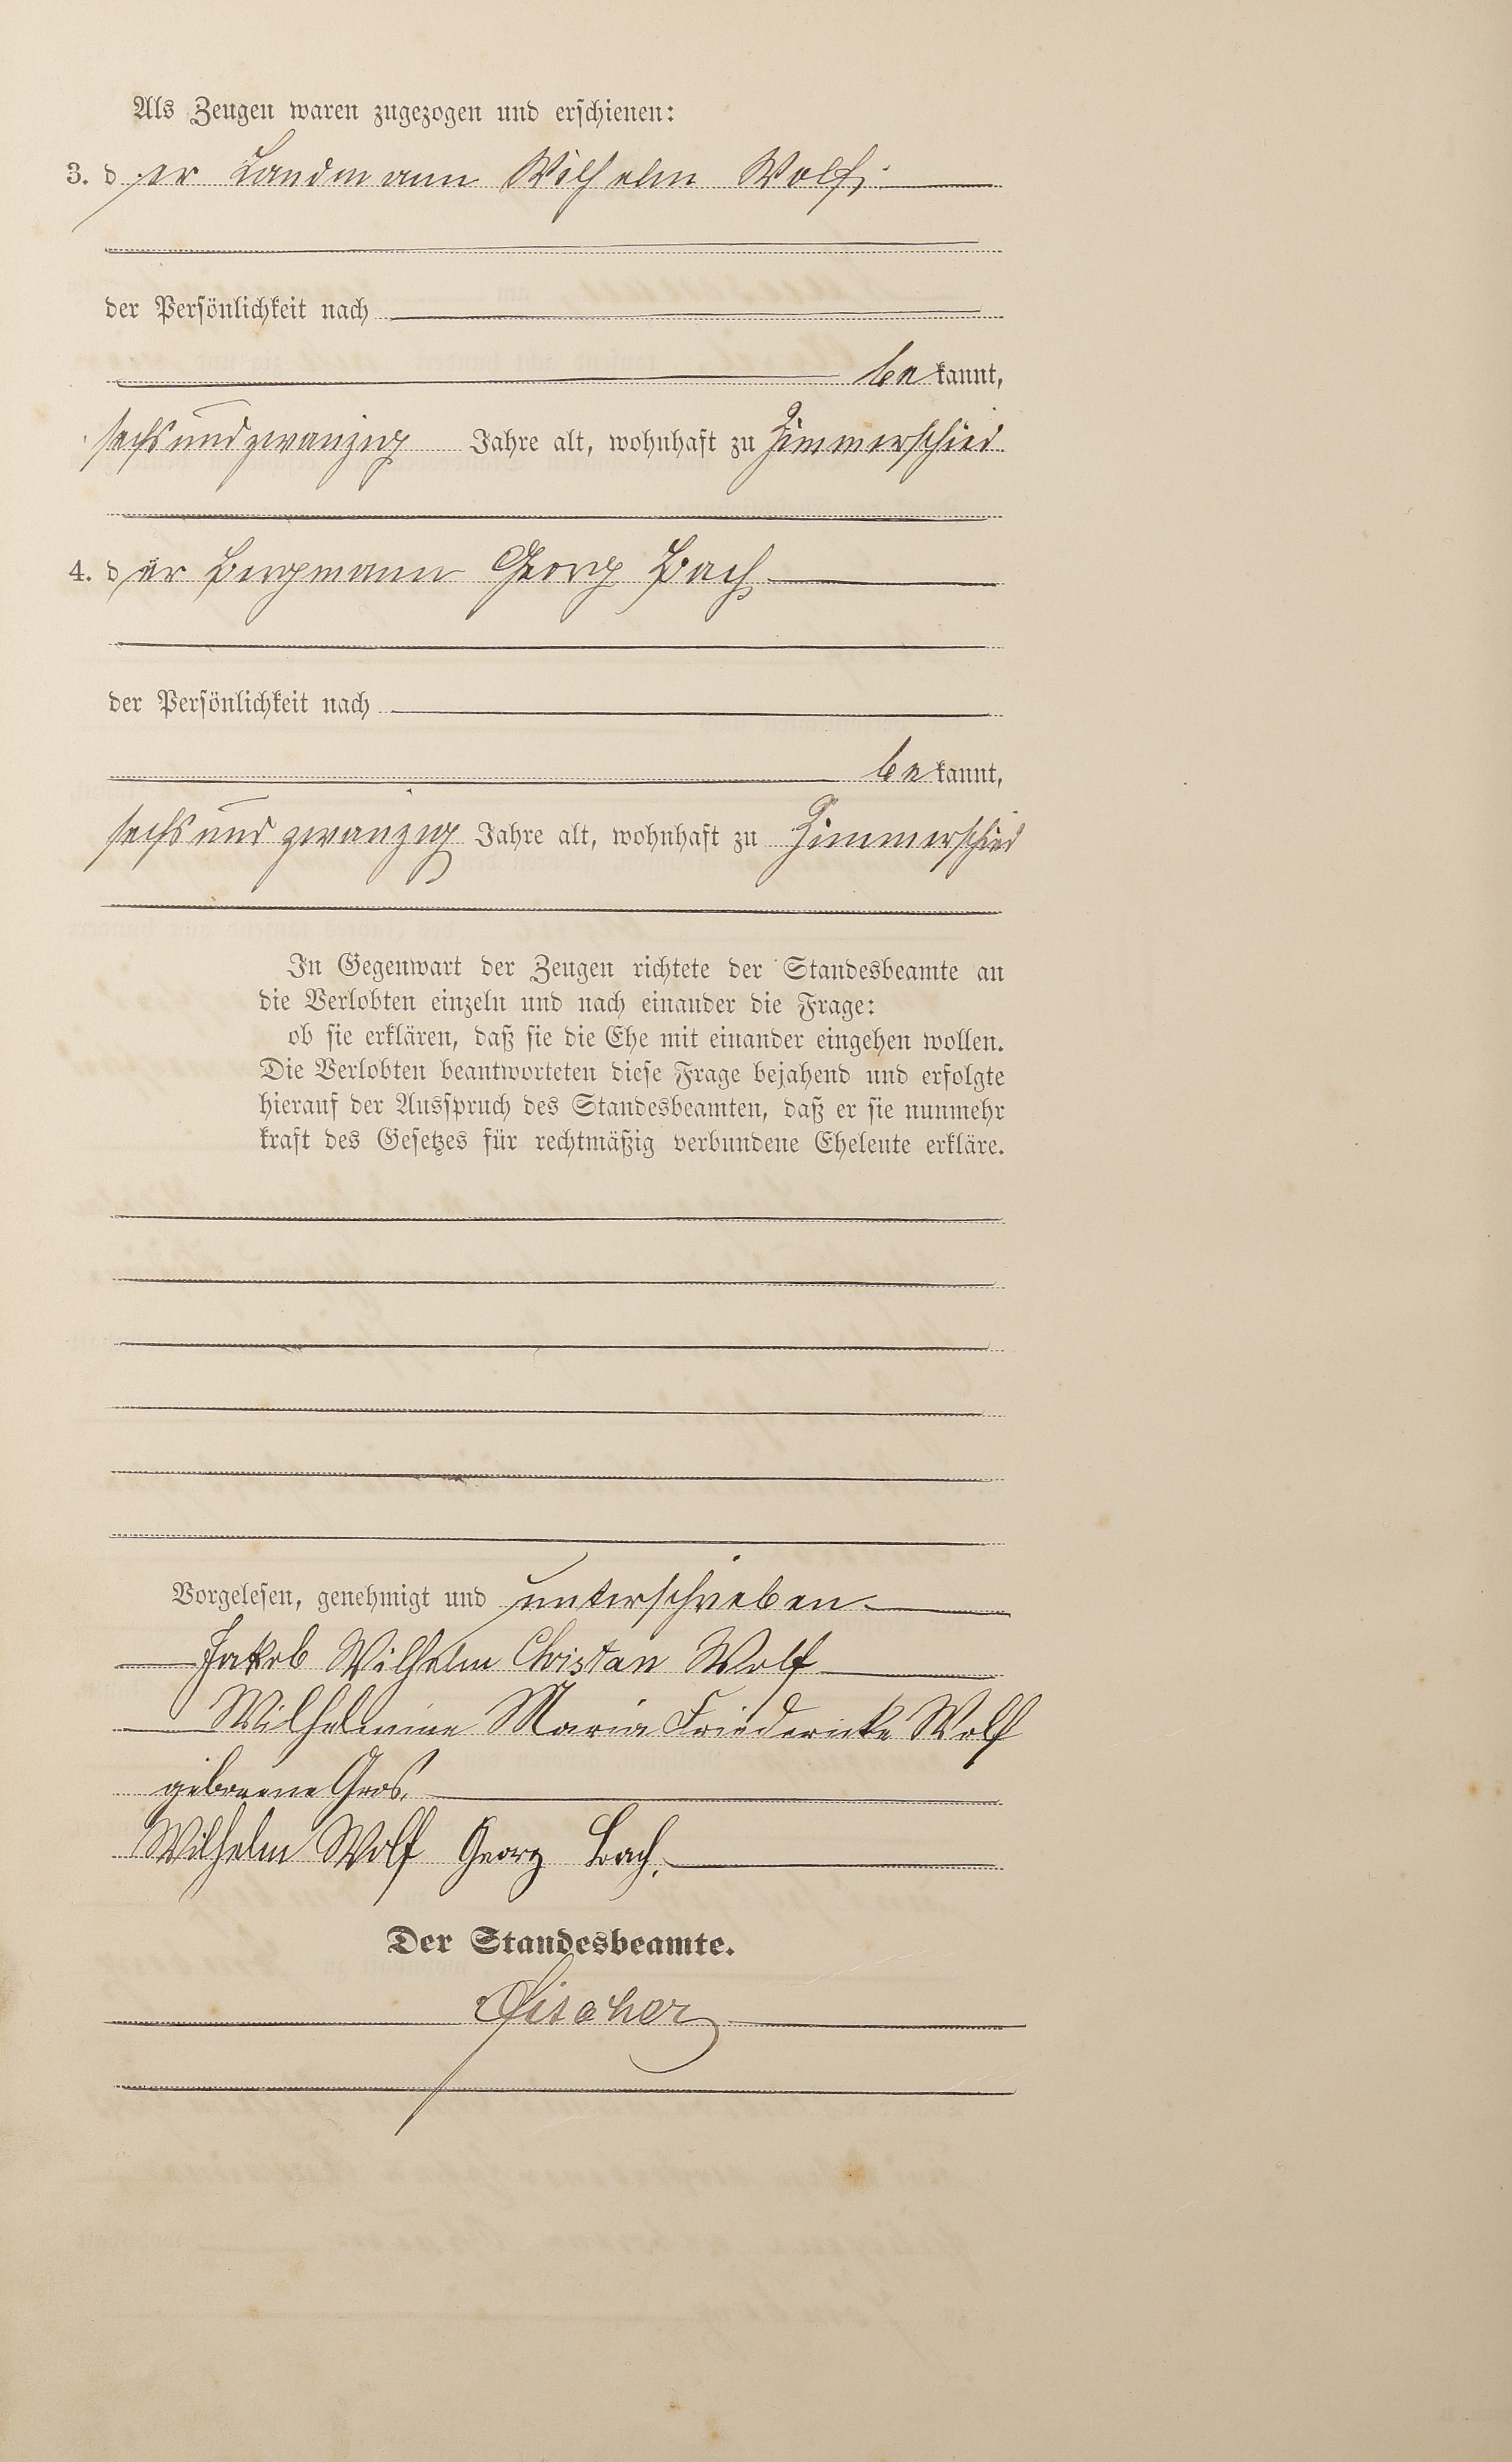 Als Zeugen waren zugezogen und erschienen:
3. der Landmann Wilhelm Wolf,
der Persönlichkeit nach
bekannt,
sechsundzwanzig Jahre alt, wohnhaft zu Zimmerschied
4. der Bergmann Georg Bach
der Persönlichkeit nach
bekannt,
sechsundzwanzig Jahre alt, wohnhaft zu Zimmerschied
In Gegenwart der Zeugen richtete der Standesbeamte an
die Verlobten einzeln und nach einander die Frage:
ob sie erklären, daß sie die Ehe mit einander eingehen wollen.
Die Verlobten beantworteten diese Frage bejahend und erfolgte
hierauf der Ausspruch des Standesbeamten, daß er sie nunmehr
kraft des Gesetzes für rechtmäßig verbundene Eheleute erkläre.
Vorgelesen, genehmigt und unterschrieben
Jakob Wilhelm Christan Wolf
Wilhelmine Maria Friedericke Wolf
geborene Gros.
Wilhelm Wolf Georg Bach.
Der Standesbeamte.
Fischer